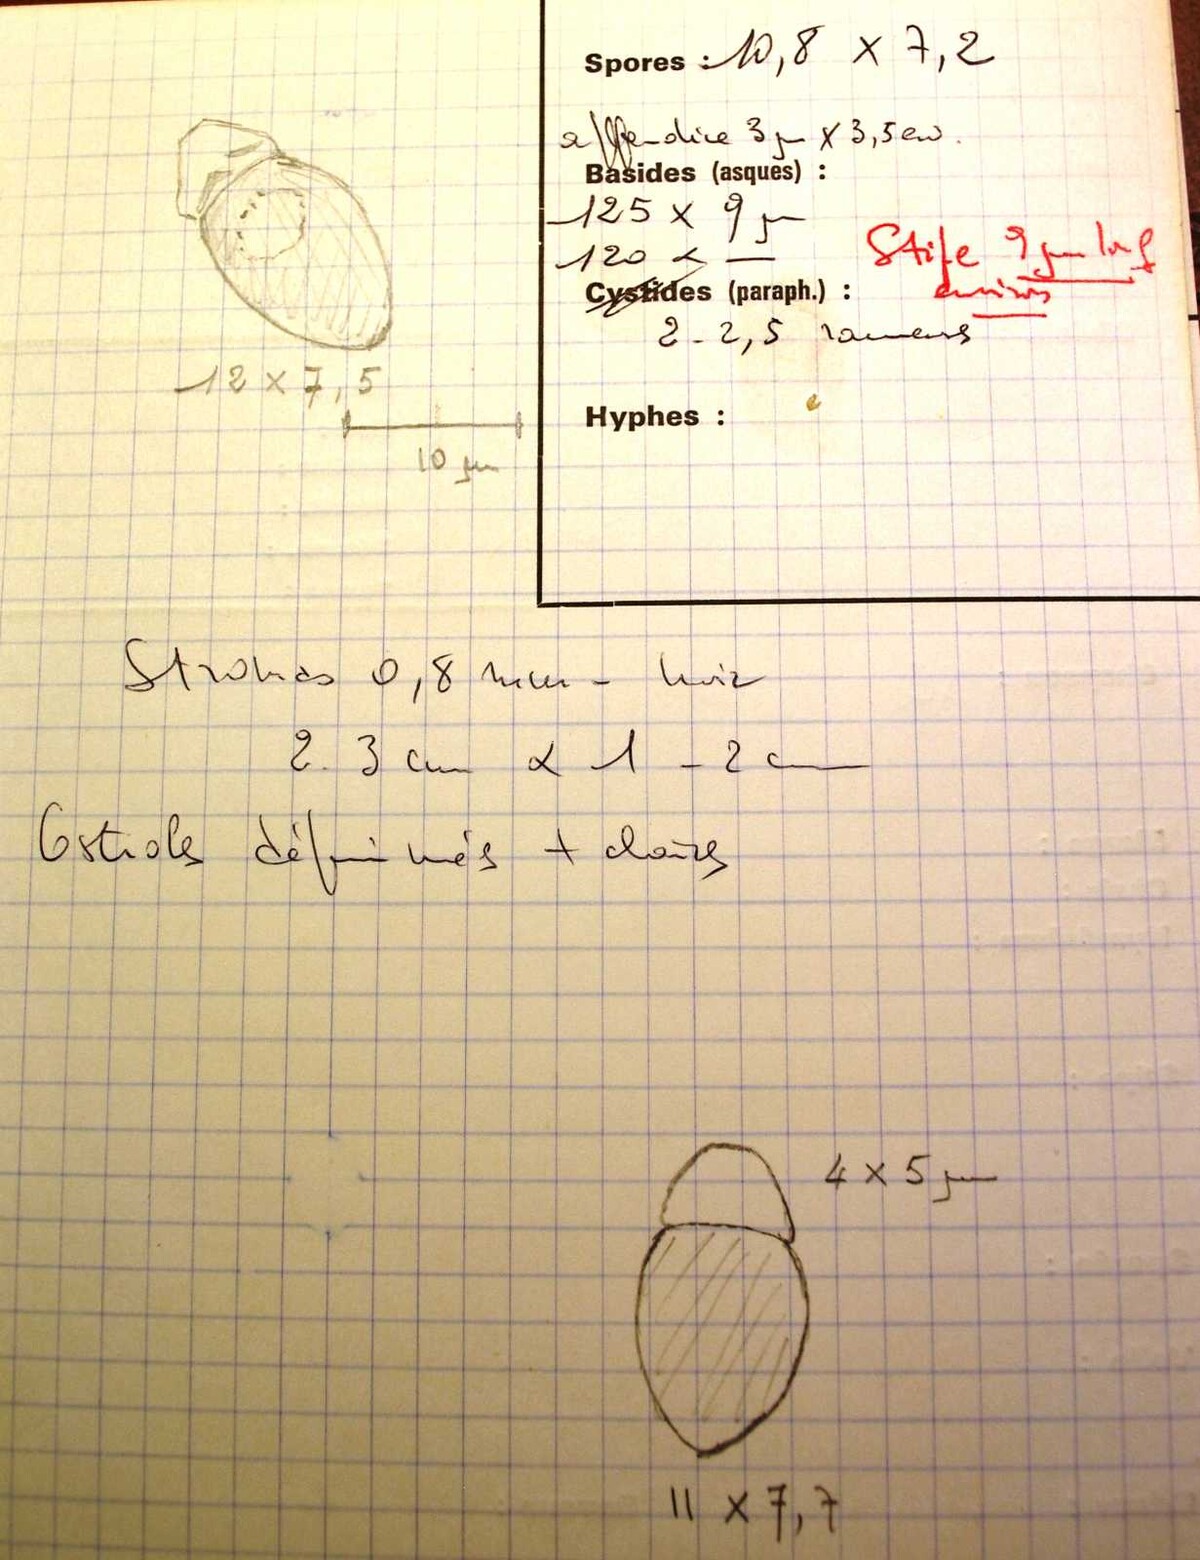 Spores : 10,8 x 7,2
appendice 3 µm x 3,5 env.
Basides (asques) :
125 x 9 µm
120 x —
Stipe 9 µm long
environ
Cystides (paraph.) :
2 - 2,5 rameux
Hyphes :
12 x 7,5
10 µm
Stromas 0,8 mm - noir
2-3 cm x 1 - 2 cm
Ostioles déprimés + clairs
4 x 5 µm
11 x 7,7